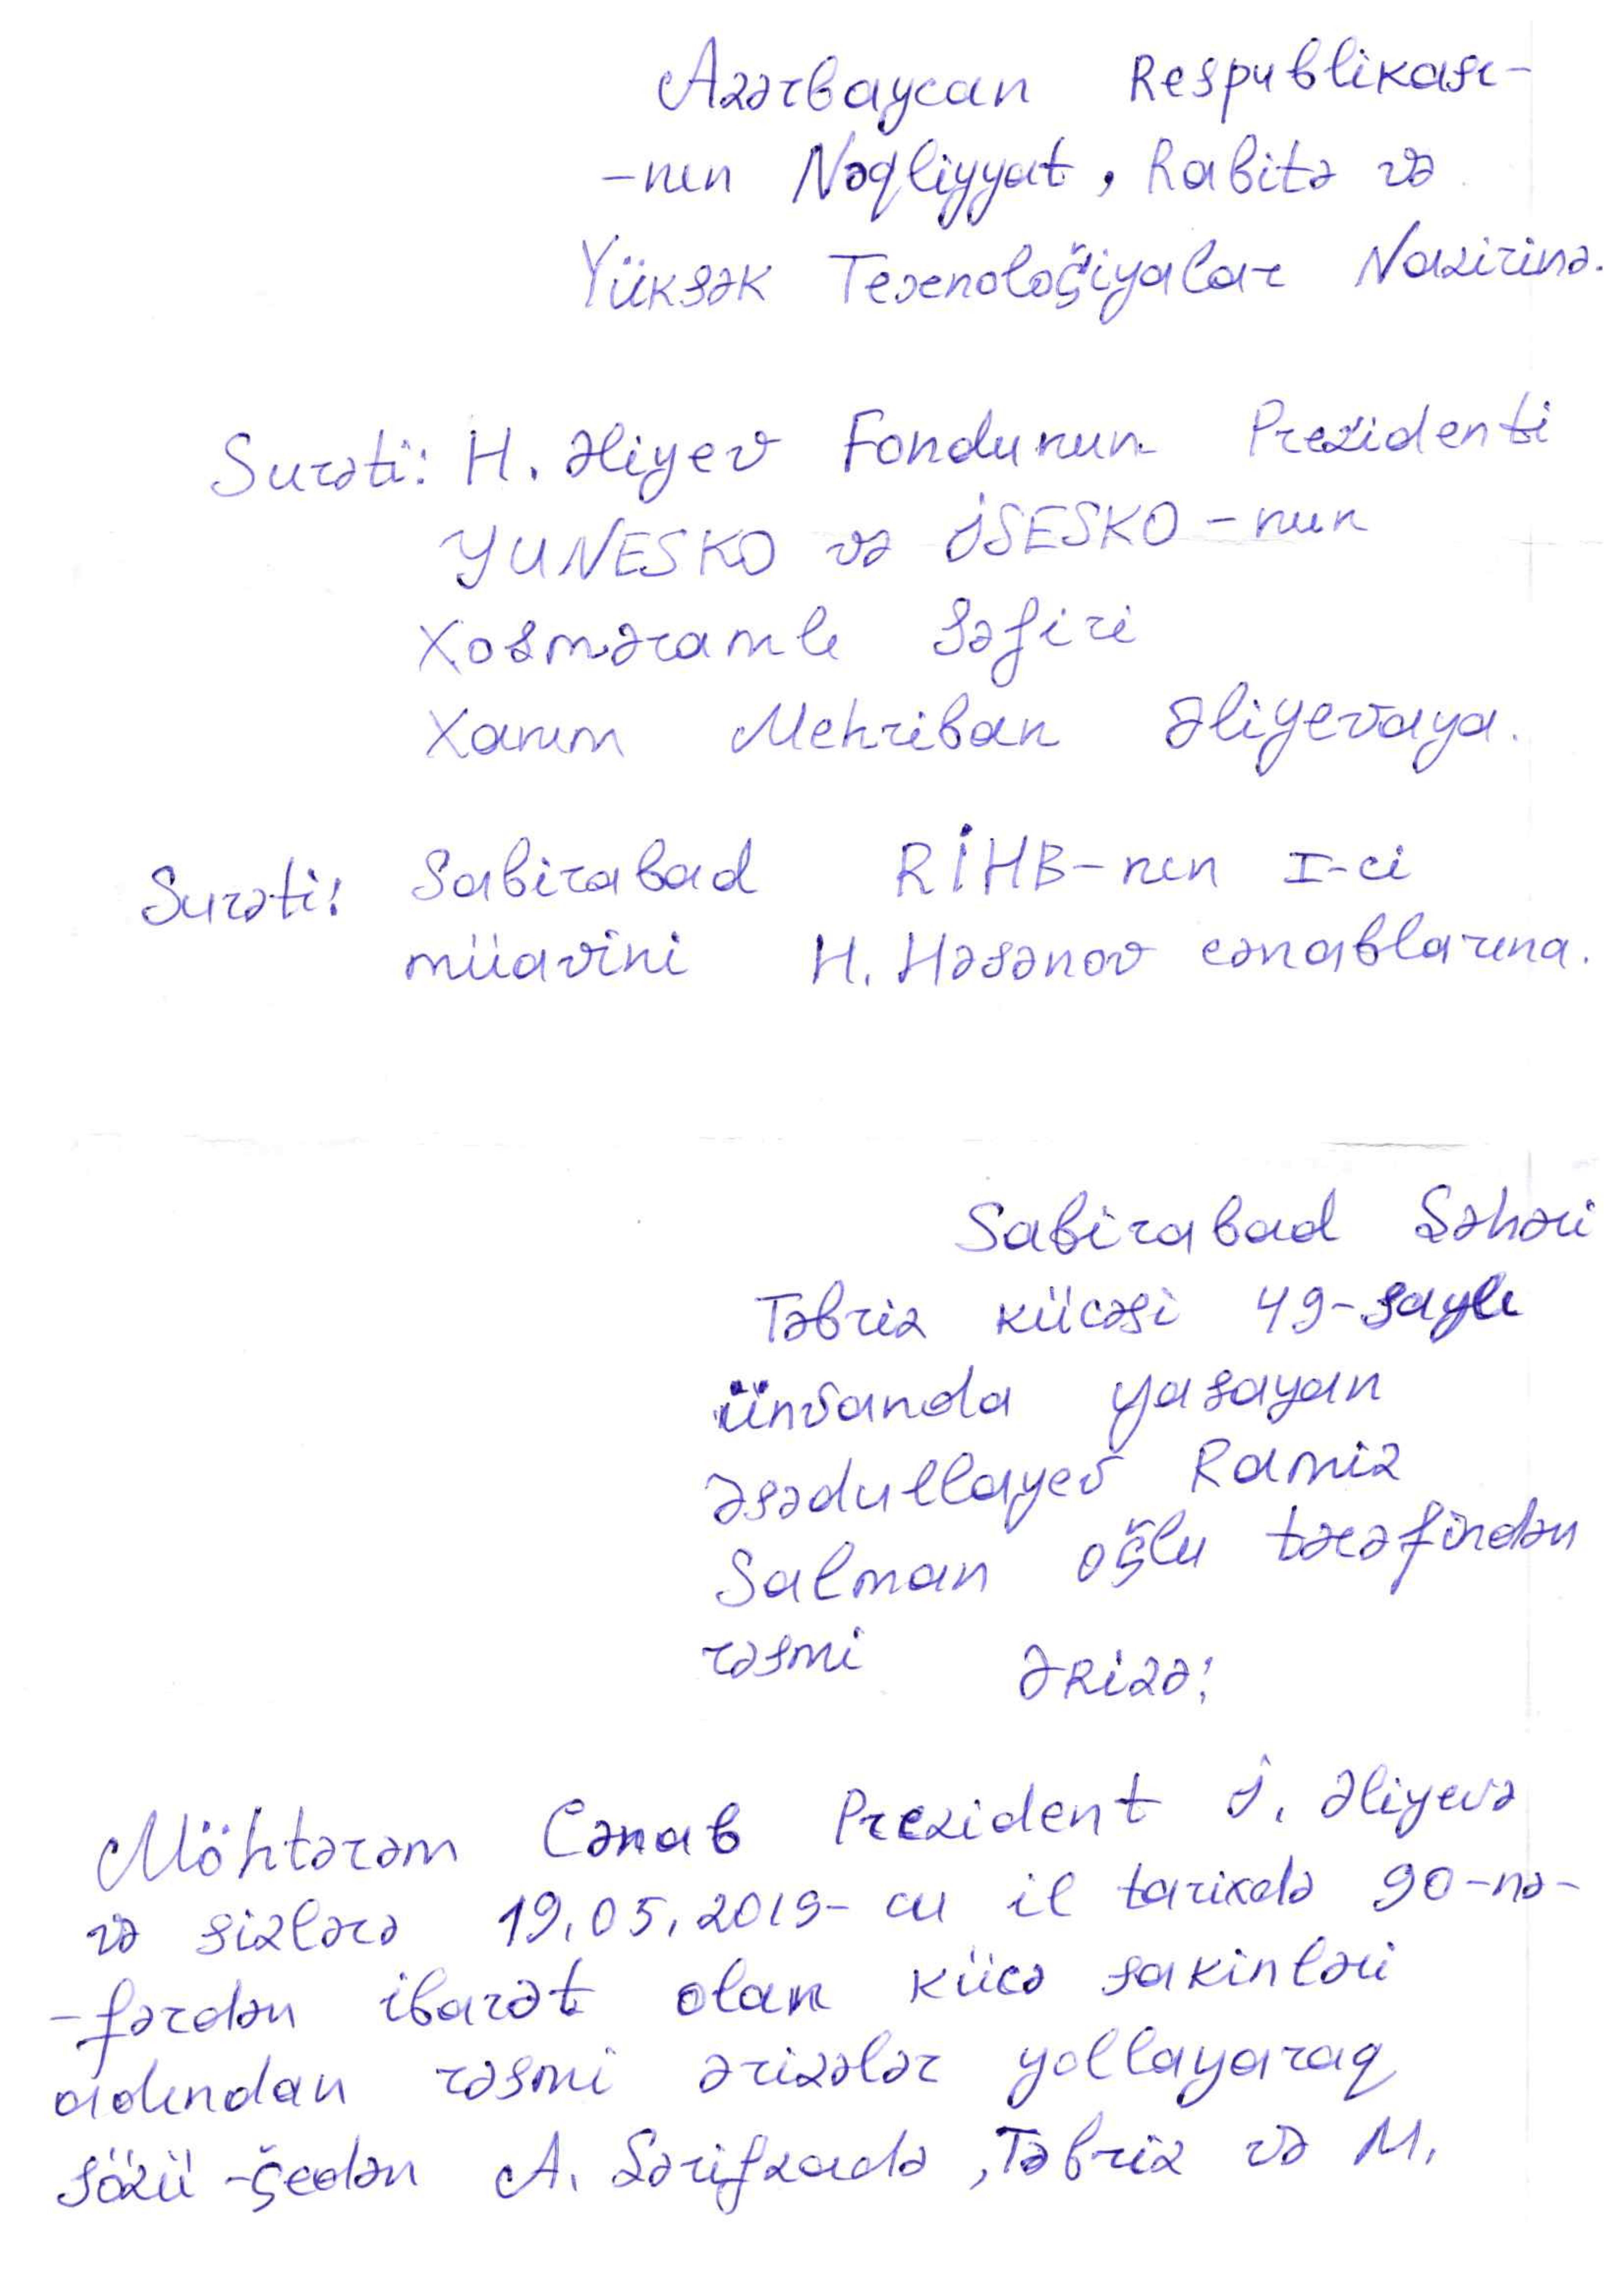 Azərbaycan Respublikası-
-nın Nəqliyyat, Rabitə və
Yüksək Texnologiyalar Nazirinə.
Surəti: H. Əliyev Fondunun Prezidenti
YUNESKO və İSESKO-nun
Xoşməramlı Səfiri
Xanım Mehriban Əliyevaya.
Surəti: Sabirabad RİHB-nın I-ci
müavini H. Həsənov cənablarına.
Sabirabad Şəhəri
Təbriz küçəsi 49-saylı
ünvanda yaşayan
Əsədullayev Ramiz
Salman oğlu tərəfindən
rəsmi ƏRizə:
Möhtərəm Cənab Prezident İ. Əliyevə
və sizlərə 19.05.2019-cu il tarixdə 90-nə-
-fərdən ibarət olan küçə sakinləri
adından rəsmi ərizələr yollayaraq
sözü-gedən A. Şərifzadə, Təbriz və M.